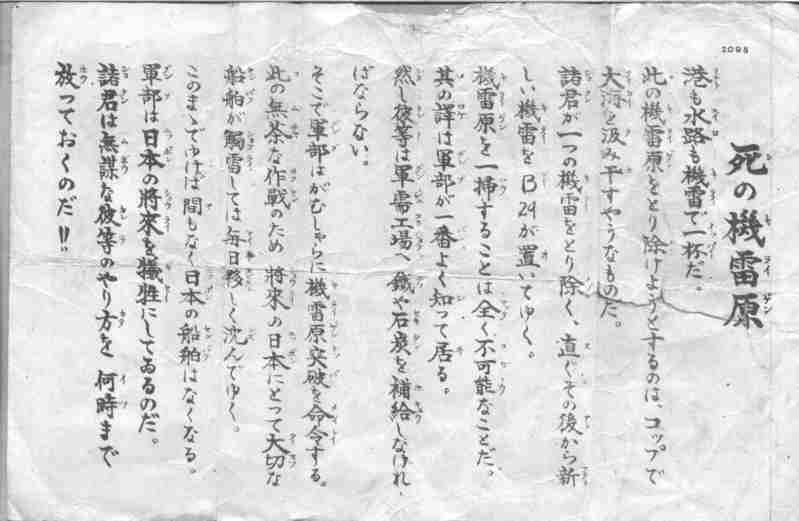 2095
死の機雷原
港も水路も機雷で一杯だ。
此の機雷原をとり除けようとするのは、コップで
大河を汲み干すやうなものだ。
諸君が一つの機雷をとり除く、直ぐその後から新
しい機雷をB24が置いてゆく。
機雷原を一掃することは全く不可能なことだ。
其の譯は軍部が一番よく知って居る。
然し彼等は軍需工場へ鐵や石炭を補給しなければ、
ばならない。
そこで軍部はがむしゃらに機雷原突破を命令する。
此の無茶な作戦のため將來の日本にとって大切な
船舶が觸雷しては毎日夥しく沈んでゆく。
このまゝでゆけば間もなく日本の船舶はなくなる。
軍部は日本の將來を犠牲にしてゐるのだ。
諸君は無謀な彼等のやり方を何時まで
放っておくのだ!!